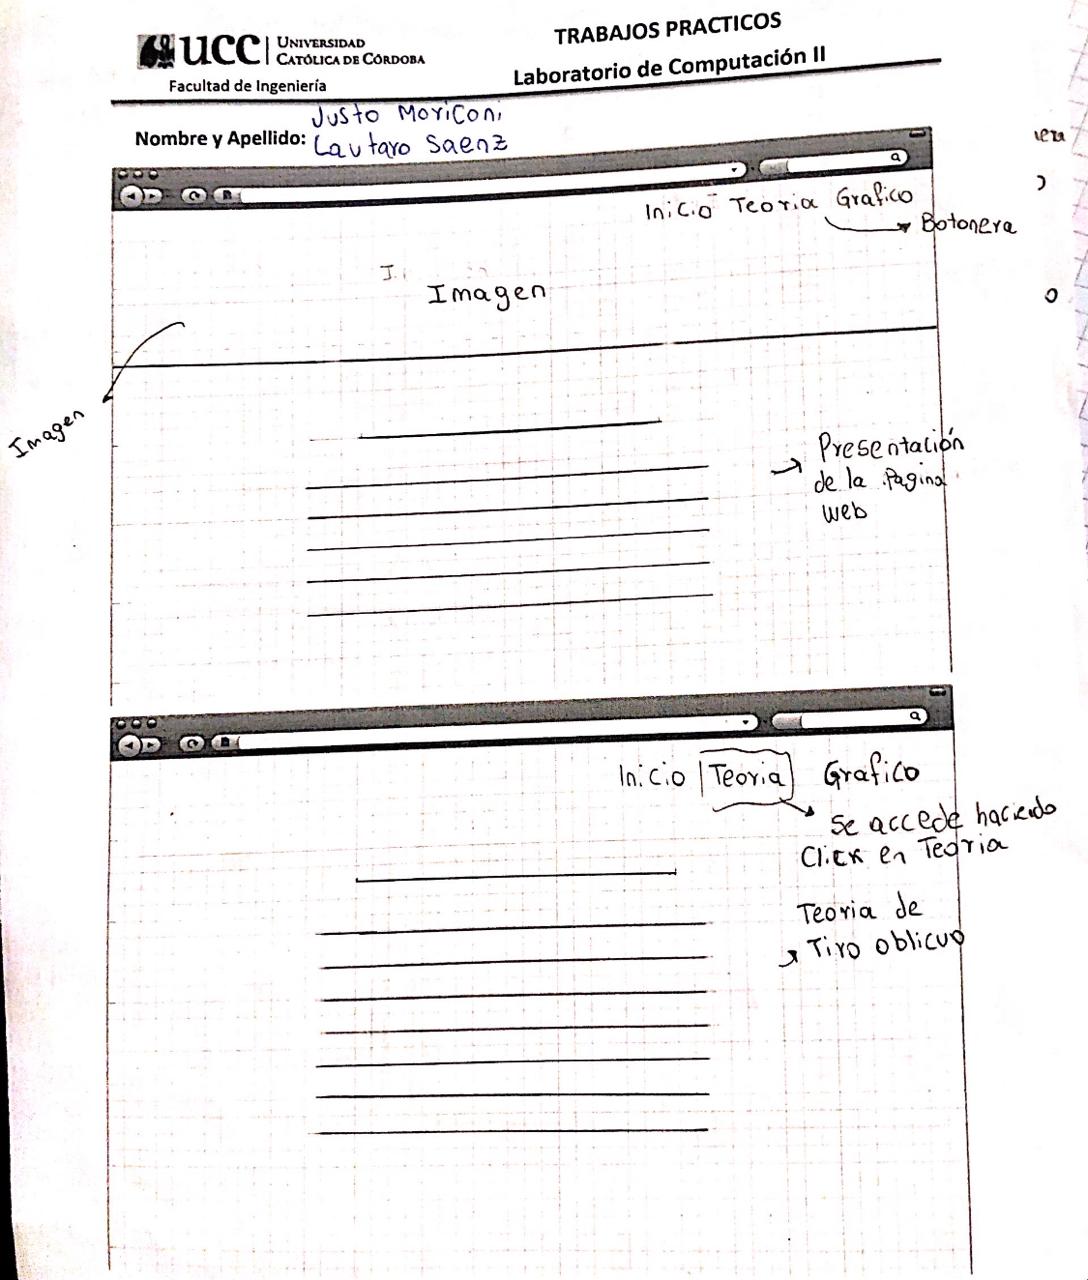 UCC UNIVERSIDAD
CATÓLICA DE CÓRDOBA
Facultad de Ingeniería
TRABAJOS PRACTICOS
Laboratorio de Computación II
Nombre y Apellido: Justo Moriconi
Lautaro Saenz
Inicio Teoria Grafico
Botonera
Imagen
Imagen
Presentación
de la Pagina
web
Inicio Teoria Grafico
Se accede haciendo
Click en Teoria
Teoria de
Tiro oblicuo